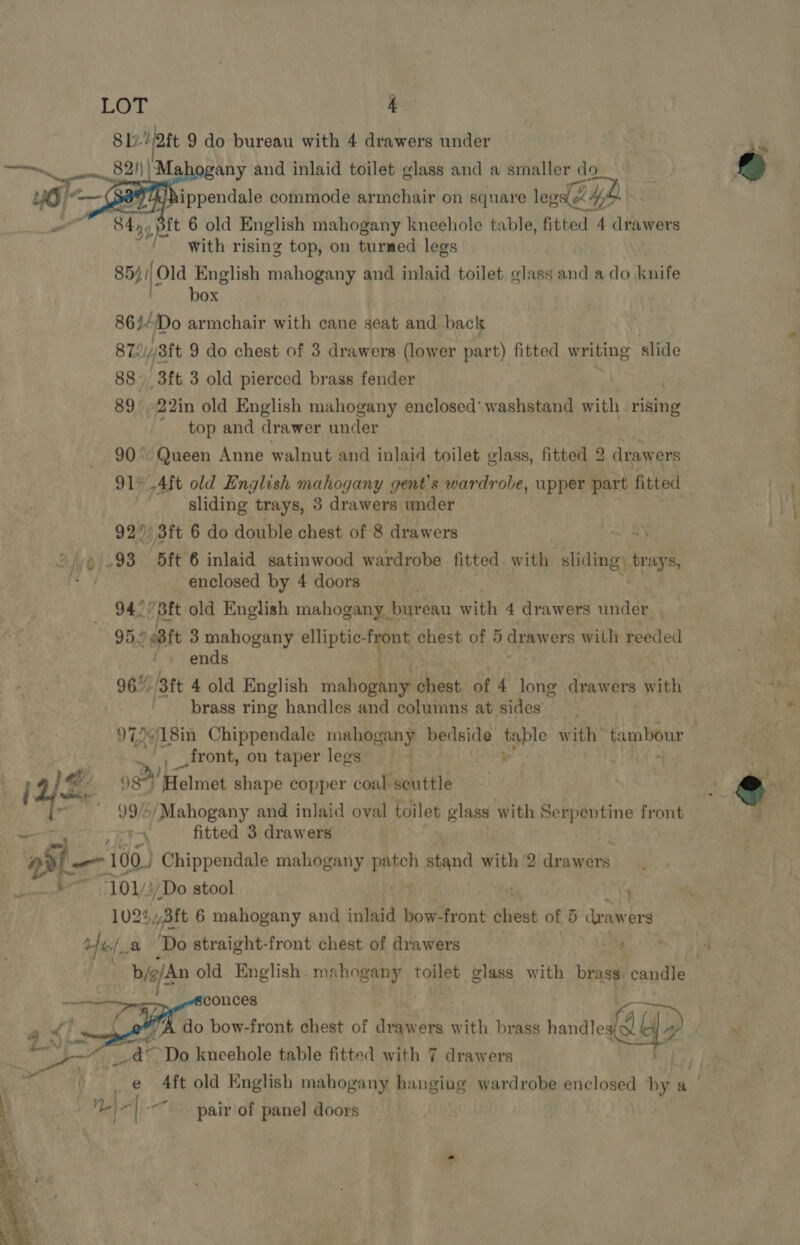 LOT 4
81 2ft 9 do bureau with 4 drawers under
82 Mahogany and inlaid toilet glass and a smaller do
Chippendale commode armchair on square legs
84 3ft 6 old English mahogany kneehole table, fitted 4 drawers
with rising top, on turned legs
85 Old English mahogany and inlaid toilet glass and a do knife
box
86 Do armchair with cane seat and back
87 3ft 9 do chest of 3 drawers (lower part) fitted writing slide
88 3ft 3 old pierced brass fender
89 22in old English mahogany enclosed washstand with rising
top and drawer under
90 Queen Anne walnut and inlaid toilet glass, fitted 2 drawers
91 4ft old English mahogany gent's wardrobe, upper part fitted
sliding trays, 3 drawers under
92 3ft 6 do double chest of 8 drawers
93 5ft 6 inlaid satinwood wardrobe fitted with sliding trays,
enclosed by 4 doors
94 3ft old English mahogany bureau with 4 drawers under
95 3ft 3 mahogany elliptic-front chest of 5 drawers with reeded
ends
96 3ft 4 old English mahogany chest of 4 long drawers with
brass ring handles and columns at sides
97 18in Chippendale mahogany bedside table with tambour
front, on taper legs
98 Helmet shape copper coal scuttle
99 Mahogany and inlaid oval toilet glass with Serpentine front
fitted 3 drawers
100 Chippendale mahogany patch stand with 2 drawers
101 Do stool
102 3ft 6 mahogany and inlaid bow-front chest of 5 drawers
a Do straight-front chest of drawers
b An old English mahogany toilet glass with brass candle
sconces
A do bow-front chest of drawers with brass handles
d Do kneehole table fitted with 7 drawers
e 4ft old English mahogany hanging wardrobe enclosed by a
pair of panel doors